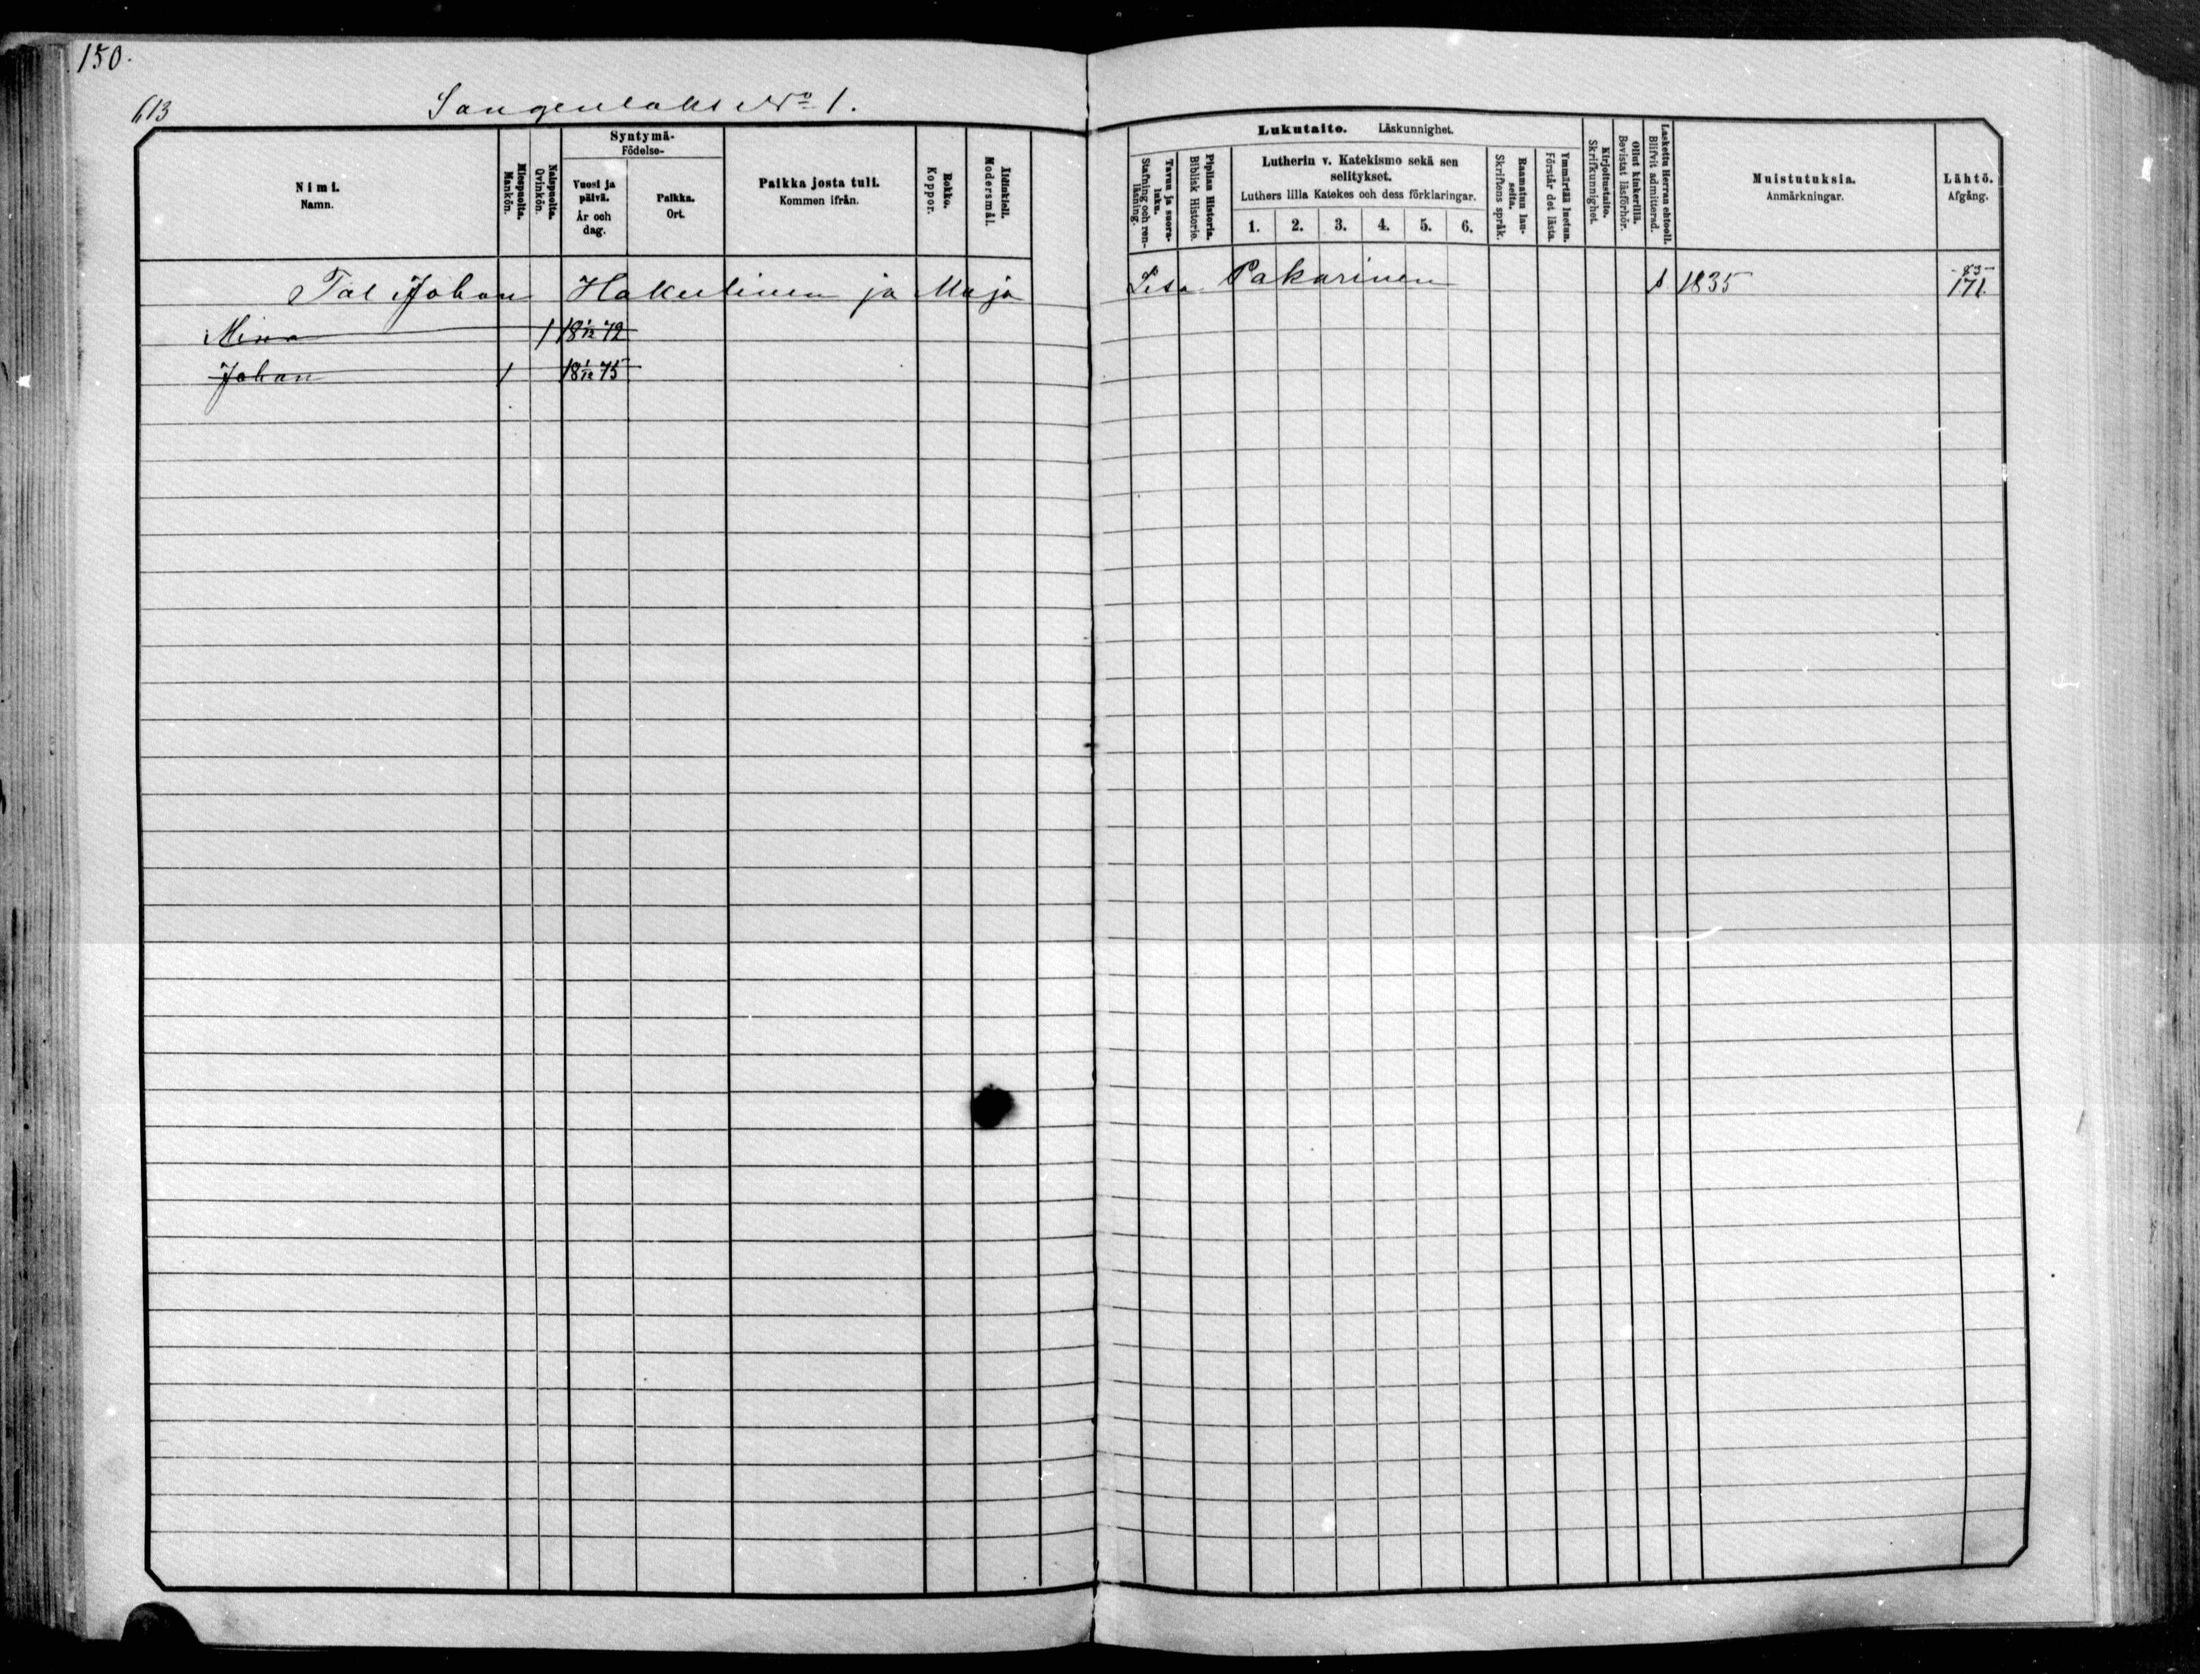 150.
613
Sangenlaks No 1.
Syntymä-
Födelse-
Nimi.
Namn.
Miespuolta.
Mankön.
Naispuolta.
Qvinkön.
Vuosi ja päivä.
År och dag.
Paikka.
Ort.
Paikka josta tuli.
Kommen ifrån.
Rokko.
Koppor.
Äidinkieli.
Modersmål.
Lukutaito. Läskunnighet.
Tavuu ja suora-luku.
Stafning och ren-läsning.
Piplian Historia.
Biblisk Historie.
Lutherin v. Katekismo sekä sen selitykset.
Luthers lilla Katekes och dess förklaringar.
1. 2. 3. 4. 5. 6.
Raamatun lau-seita.
Skriftens språk.
Ymmärtää luetun.
Förstår det lästa.
Kirjoitustaito.
Skrifkunnighet.
Ollut kinkerillä.
Bevistat läsförhör.
Laskettu Herran ehtooll.
Blifvit admitterad.
Muistutuksia.
Anmärkningar.
Lähtö.
Afgång.
Tal Johan Hakulinen ja Maja Lisa Pakarinen s 1835 -83- 171.
Mina 1 18 1/12 72
Johan 1 18 1/12 75